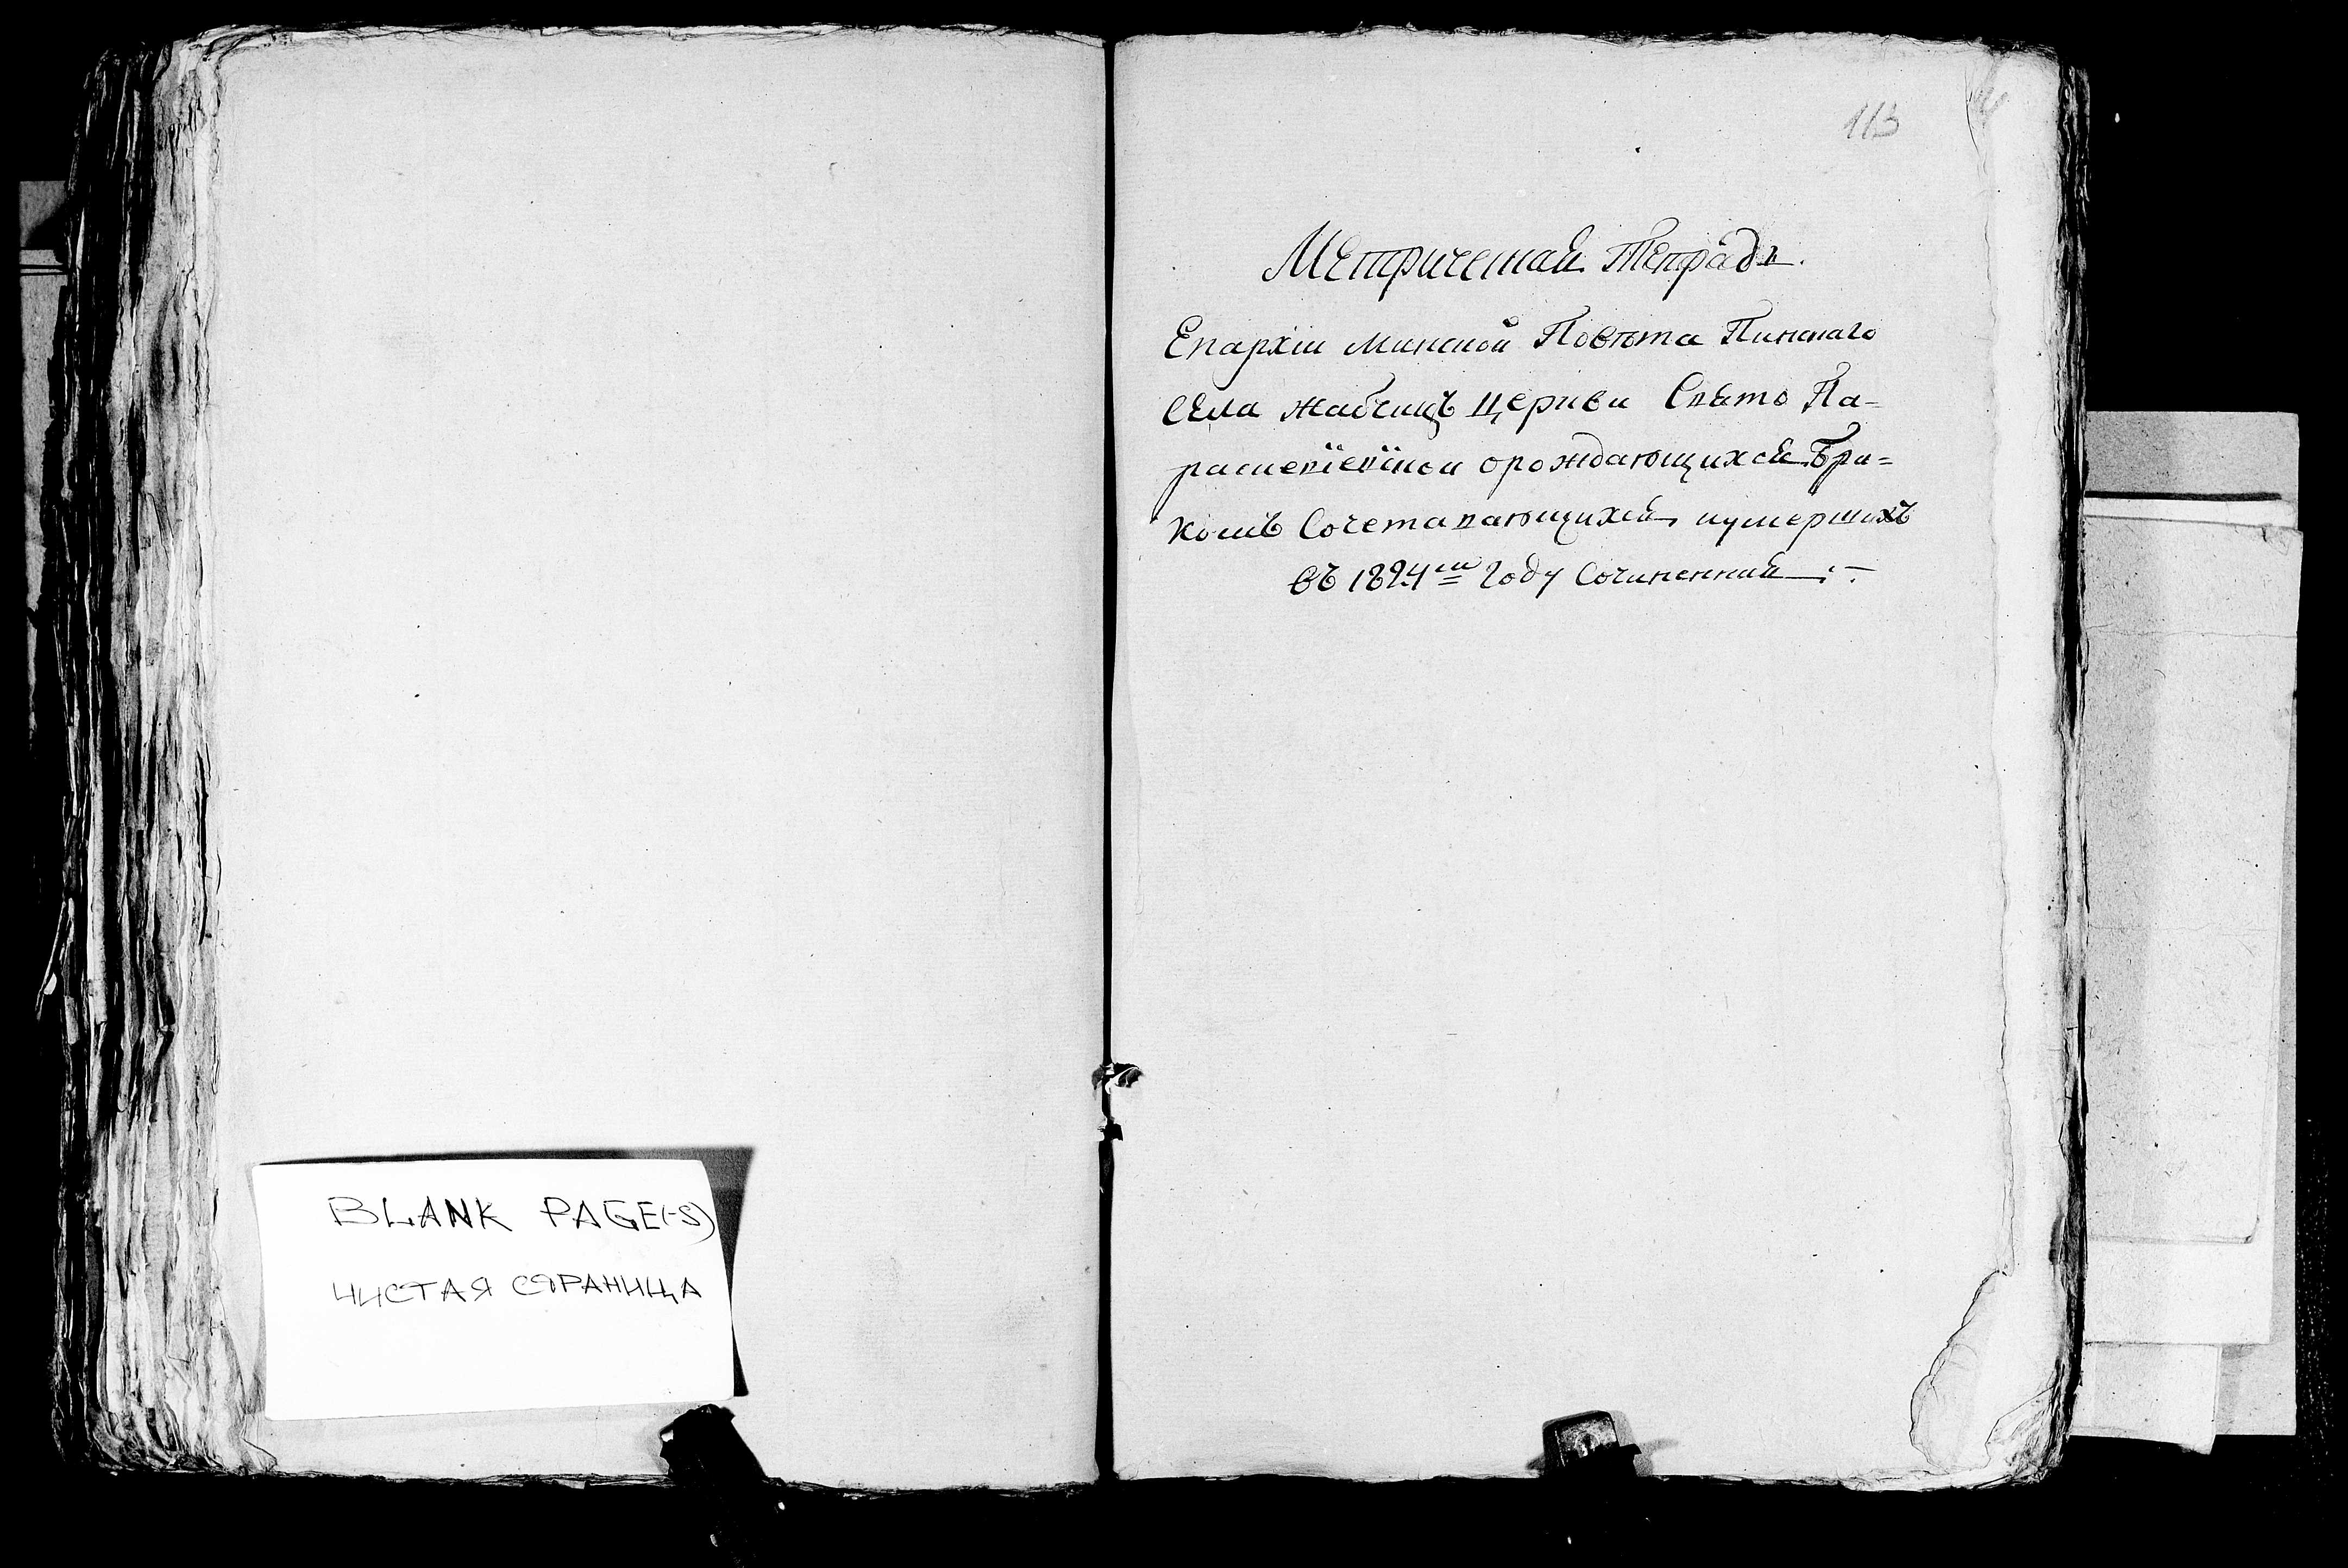 BLANK PAGE(-S)
ЧИСТАЯ СТРАНИЦА
113
Метрическая Тетрадь.
Епархіи Минской Повѣта Пинскаго
Села Жабчицъ Церкви Свято Па-
раскевіевской орождающихся Бра-
комъ Сочетавающихся, иумершихъ
въ 1824мъ Году Сочиненная